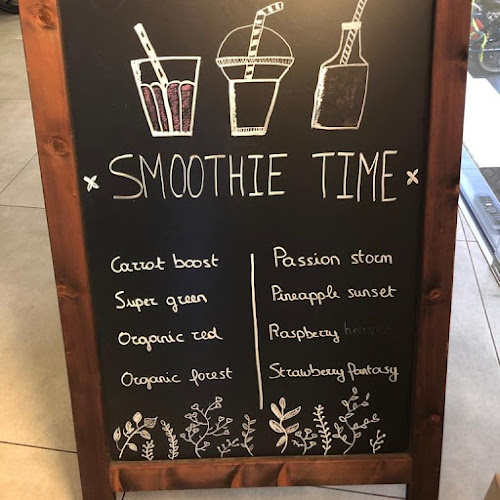 SMOOTHIE TIME
Carrot boost
Super green
Organic red
Organic forest
Passion storm
Pineapple sunset
Raspberry heaven
Strawberry fantasy